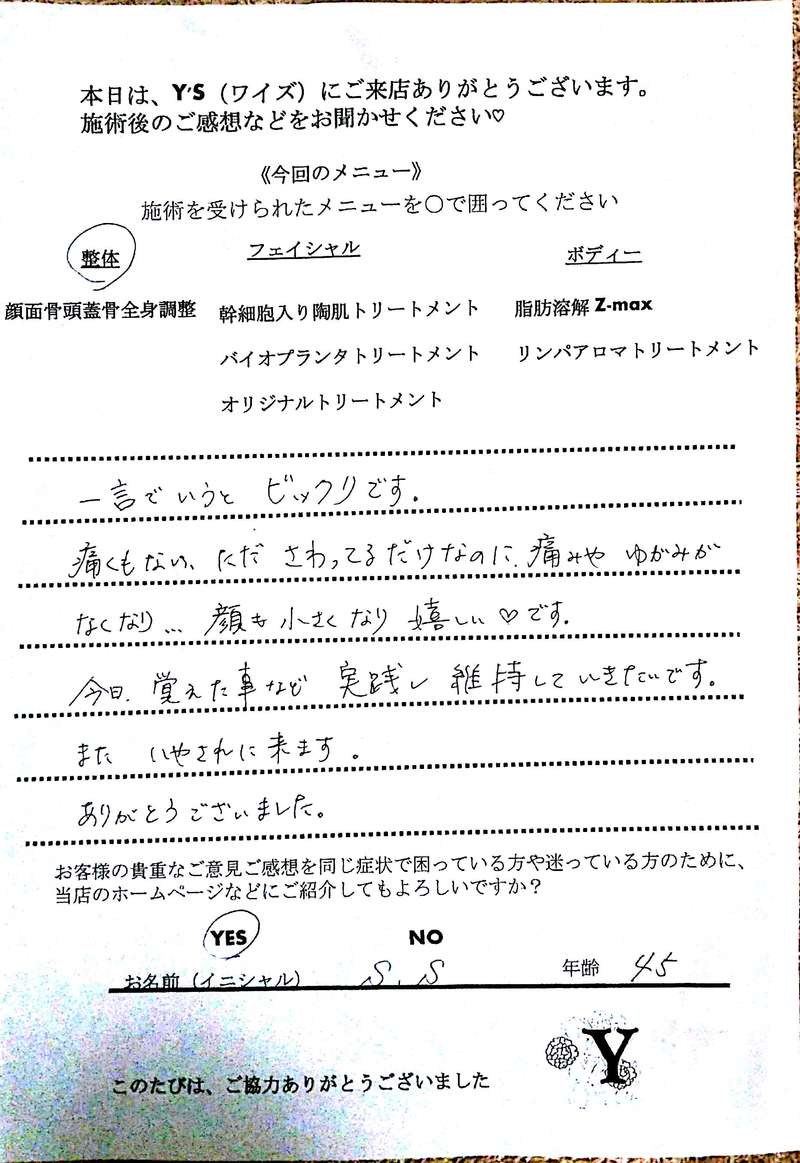 本日は、Y'S（ワイズ）にご来店ありがとうございます。
施術後のご感想などをお聞かせください♡
《今回のメニュー》
施術を受けられたメニューを〇で囲ってください
整体 フェイシャル ボディー
顔面骨頭蓋骨全身調整 幹細胞入り陶肌トリートメント 脂肪溶解 Z-max
バイオプランタトリートメント リンパアロマトリートメント
オリジナルトリートメント
一言でいうと ビックリです。
痛くもない、ただ さわってるだけなのに、痛みや ゆがみが
なくなり… 顔も 小さくなり 嬉しい♡です。
今日、覚えた事など 実践し 維持して いきたいです。
また いやされに来ます。
ありがとうございました。
お客様の貴重なご意見ご感想を同じ症状で困っている方や迷っている方のために、
当店のホームページなどにご紹介してもよろしいですか？
YES NO
お名前（イニシャル） S.S 年齢 45
Y
このたびは、ご協力ありがとうございました